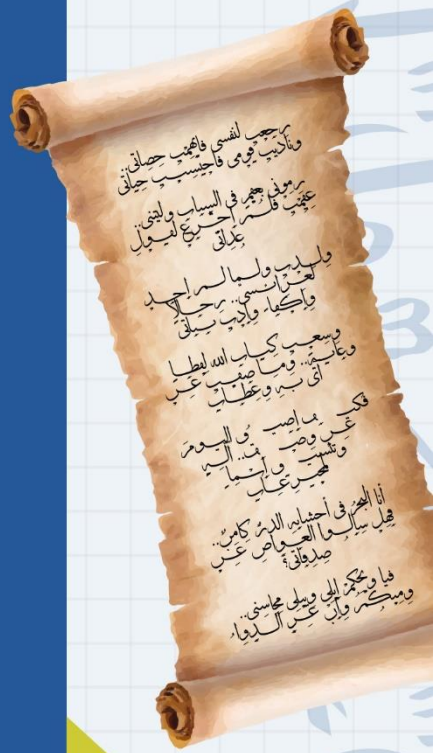 رجعت لنفسي فاتهمت حصاتي..
وناديت قومي فاحتسبت حياتي
رموني بعقم في الشباب وليتني..
عقمت فلم أجزع لقول
عداتي
ولدت ولما لم أجد
لعرائسي.. رجالا
وأكفاء وأدت بناتي
وسعت كتاب الله لفظا
وغاية.. وما ضقت عن
آي به وعظات
عن
أنا البحر في أحشائه الدر كامن..
فهل سألوا الغواص عن
صدفاتي؟
فيا ويحكم أبلى وتبلى محاسني..
ومنكم وإن عز الدواء